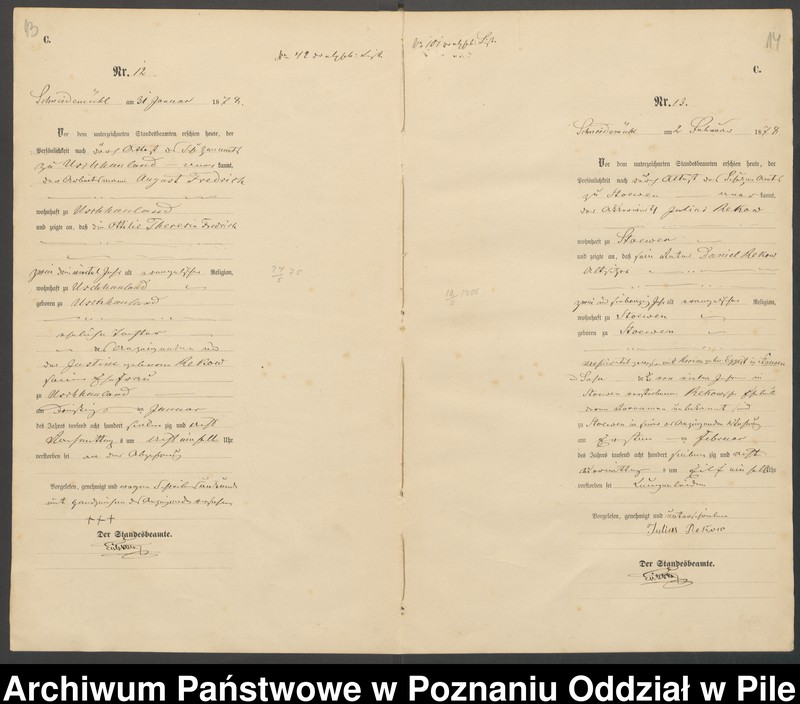 13
C.
Nr. 12
Schneidemühl am 31 Januar 1878.
Vor dem unterzeichneten Standesbeamten erschien heute, der
Persönlichkeit nach durch Attest des
zu Uschhauland kannt,
der Arbeitsmann August Fredrich
wohnhaft zu Uschhauland
und zeigte an, daß die Ottilie Theresia Fredrich
zwei drei viertel Jahr alt evangelischer Religion,
wohnhaft zu Uschhauland
geboren zu Uschhauland
eheliche Tochter
des Anzeigenden und
der Justine geborene Rekow
seine Ehefrau
zu Uschhauland
am Dreißig ten Januar
des Jahres tausend acht hundert sieben zig und acht
Nachmittag s um acht ein halb Uhr
verstorben sei an der Abzehrung
Vorgelesen, genehmigt und wegen Schreibensunkunde
mit Handzeichen des Anzeigenden versehen
+++
Der Standesbeamte.
14
C.
Nr. 13.
Schneidemühl am 2 Februar 1878
Vor dem unterzeichneten Standesbeamten erschien heute, der
Persönlichkeit nach durch Attest des Schulzen Amts
zu Stoewen kannt,
der Julius Rekow
wohnhaft zu Stoewen
und zeigte an, daß sein Vater Daniel Rekow
Altsitzer
zwei und siebenzig Jahr alt evangelischer Religion,
wohnhaft zu Stoewen
geboren zu Stoewen
verheirathet gewesen mit
Sohn der vor vielen Jahren in
Stoewen verstorbenen Rekow
deren Vornamen unbekannt sind
zu Stoewen in seiner des Anzeigenden Wohnung
am Ersten ten Februar
des Jahres tausend acht hundert sieben zig und acht
Vormittag s um Eilf ein halb Uhr
verstorben sei Lungenleiden
Vorgelesen, genehmigt und unterschrieben
Julius Rekow
Der Standesbeamte.
Archiwum Państwowe w Poznaniu Oddział w Pile